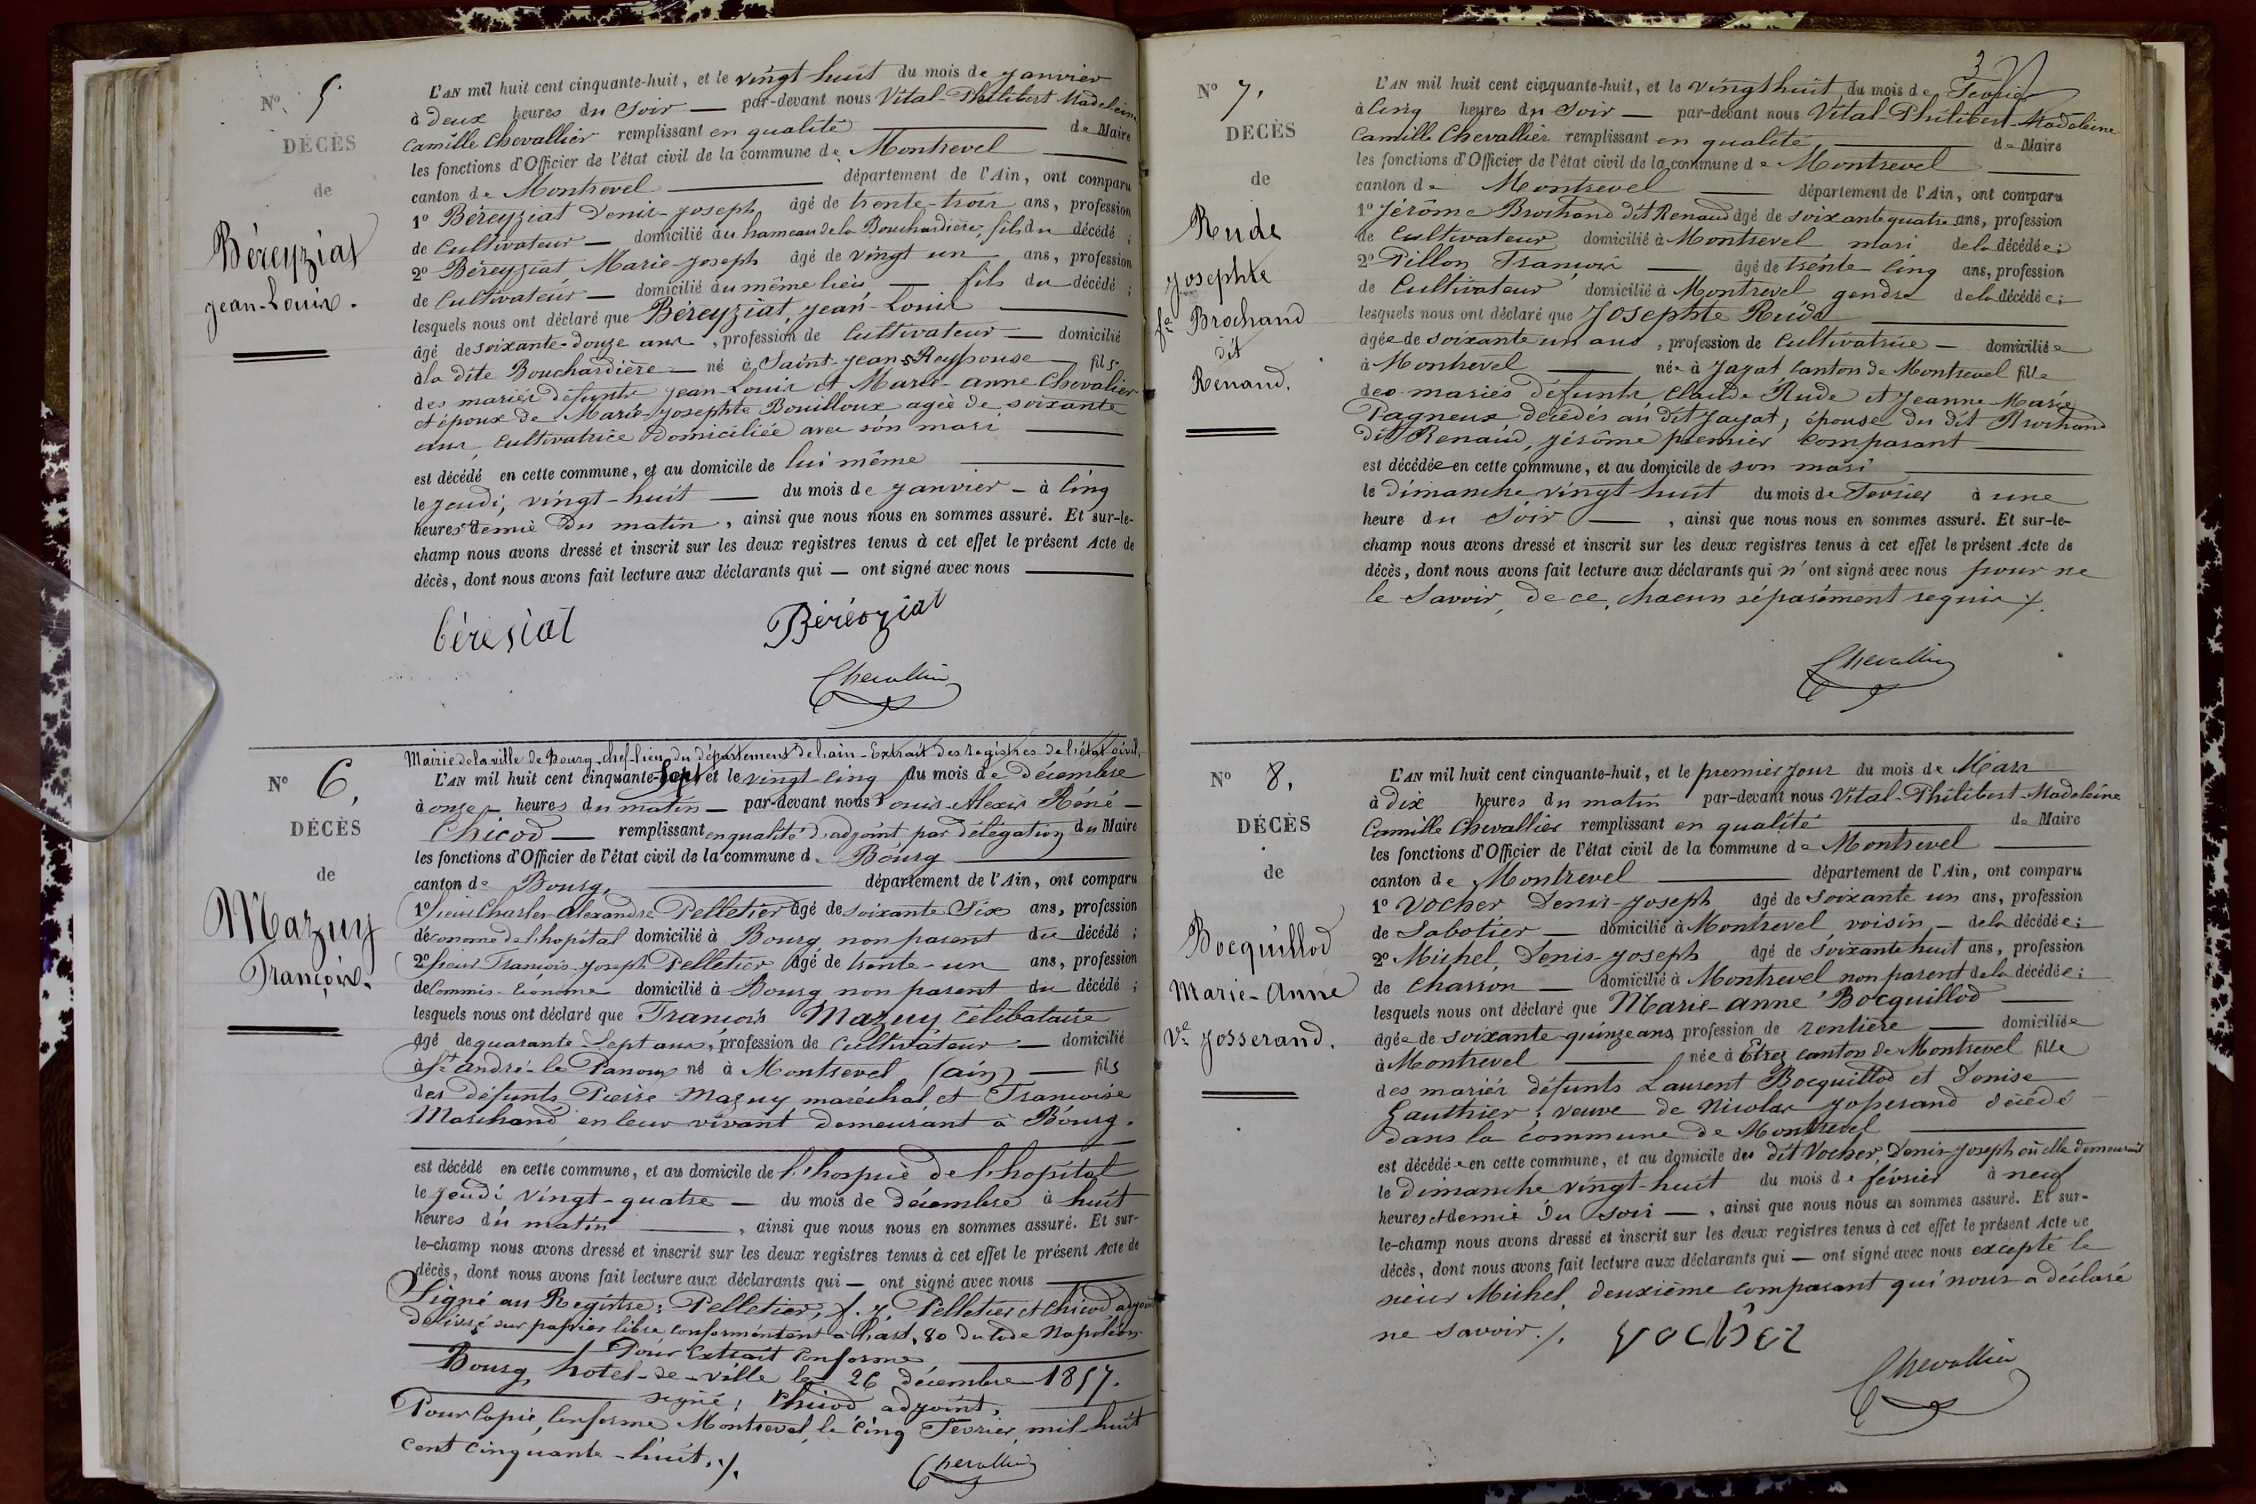 Nº 5
DÉCÈS
de
Béreyziat
Jean-Louis.
L'AN mil huit cent cinquante-huit, et le vingt huit du mois de Janvier
à deux heures du soir — par-devant nous Vital-Philibert Madeleine
Camille Chevallier remplissant en qualité — de Maire
les fonctions d'Officier de l'état civil de la commune de Montrevel —
canton de Montrevel — département de l'Ain, ont comparu
1º Béreyziat Denis-Joseph âgé de trente-trois ans, profession
de Cultivateur — domicilié au hameau de la Bouchardière, fils du décédé ;
2º Béreyziat Marie-Joseph âgé de vingt un ans, profession
de Cultivateur — domicilié au même lieu — fils du décédé ;
lesquels nous ont déclaré que Béreyziat, Jean-Louis —
âgé de soixante-douze ans, profession de Cultivateur — domicilié
à la dite Bouchardière — né à Saint-Jean-s-Reyssouse — fils
des mariés défunts Jean-Louis et Marie-anne Chevalier
et époux de Marie-Josephte Bouilloux, agée de soixante
ans, cultivatrice domiciliée avec son mari —
est décédé en cette commune, et au domicile de lui même —
le Jeudi, vingt-huit — du mois de Janvier - à cinq
heures et demie du matin, ainsi que nous nous en sommes assuré. Et sur-le-
champ nous avons dressé et inscrit sur les deux registres tenus à cet effet le présent Acte de
décès, dont nous avons fait lecture aux déclarants qui — ont signé avec nous —
béresiat Béréoziat
Chevallier
Nº 6,
DÉCÈS
de
Mazuy
François.
Mairie de la ville de Bourg, chef-lieu du département de l'ain - Extrait des registres de l'état civil,
L'AN mil huit cent cinquante-sept et le vingt-cinq du mois de décembre
à onze — heures du matin — par-devant nous Louis-Alexis Réné —
Chicod — remplissant en qualité d'adjoint par délégation du Maire
les fonctions d'Officier de l'état civil de la commune de Bourg —
canton de Bourg, — département de l'Ain, ont comparu
1º sieur Charles-Alexandre Pelletier âgé de soixante-six ans, profession
d'économe de l'hopital domicilié à Bourg non parent du décédé ;
2º sieur François-Joseph Pelletier âgé de trente-un ans, profession
de Commis-Econome domicilié à Bourg non parent du décédé ;
lesquels nous ont déclaré que François Mazuy célibataire
âgé de quarante-sept ans, profession de Cultivateur — domicilié
à St andré-le Panoux né à Montrevel (ain) — fils
des défunts Pierre Mazuy maréchal, et Françoise
Marchand en leur vivant demeurant à Bourg.
est décédé en cette commune, et au domicile de l'hospice de l'hopital
le jeudi vingt-quatre — du mois de décembre à huit
heures du matin —, ainsi que nous nous en sommes assuré. Et sur-
le-champ nous avons dressé et inscrit sur les deux registres tenus à cet effet le présent Acte de
décès, dont nous avons fait lecture aux déclarants qui — ont signé avec nous —
Signé au Registre: Pelletier, f. j. Pelletier et Chicod adjoint
Délivré sur papier libre conformément à l'art. 80 du Code Napoléon
Pour Extrait Conforme
Bourg, hotel-de-ville le 26 décembre 1857.
signé: Chicod adjoint,
Pour Copie, Conforme Montrevel, le cinq Fevrier, mil-huit
cent cinquante-huit./.
Chevallier
37
Nº 7.
DÉCÈS
de
Rude
Josephte
fe Brochand
dit
Renaud.
L'AN mil huit cent cinquante-huit, et le vingt huit du mois de Fevrier
à cinq heures du soir — par-devant nous Vital-Philibert-Madeleine
Camille Chevallier remplissant en qualité — de Maire
les fonctions d'Officier de l'état civil de la commune de Montrevel —
canton de Montrevel — département de l'Ain, ont comparu
1º Jérôme Brochand dit Renaud âgé de soixante quatre ans, profession
de Cultivateur domicilié à Montrevel mari de la décédée ;
2º Pillon François — âgé de trente cinq ans, profession
de Cultivateur domicilié à Montrevel gendre de la décédée ;
lesquels nous ont déclaré que Josephte Rude —
âgée de soixante un ans, profession de Cultivatrice — domiciliée
à Montrevel — née à Jayat canton de Montrevel fille
des mariés défunts Claude Rude et Jeanne Marie
Pagneux décédés au dit Jayat, épouse du dit Brochand
dit Renaud, Jérôme premier comparant —
est décédée en cette commune, et au domicile de son mari —
le dimanche vingt huit du mois de Fevrier à une
heure du soir —, ainsi que nous nous en sommes assuré. Et sur-le-
champ nous avons dressé et inscrit sur les deux registres tenus à cet effet le présent Acte de
décès, dont nous avons fait lecture aux déclarants qui n'ont signé avec nous pour ne
le savoir, de ce, chacun séparément requis./.
Chevallier
Nº 8,
DÉCÈS
de
Bocquillod
Marie-Anne
Ve Josserand.
L'AN mil huit cent cinquante-huit, et le premier jour du mois de Mars
à dix heures du matin par-devant nous Vital-Philibert-Madeleine
Camille Chevallier remplissant en qualité — de Maire
les fonctions d'Officier de l'état civil de la commune de Montrevel —
canton de Montrevel — département de l'Ain, ont comparu
1º Vocher Denis-Joseph âgé de soixante un ans, profession
de Sabotier — domicilié à Montrevel voisin — de la décédée ;
2º Michel, Denis-Joseph âgé de soixante huit ans, profession
de Charron — domicilié à Montrevel non parent de la décédée ;
lesquels nous ont déclaré que Marie-anne Bocquillod —
âgée de soixante-quinze ans, profession de rentière — domiciliée
à Montrevel — née à Etrez canton de Montrevel fille
des mariés défunts Laurent Bocquillod et Denise
Gauthier; veuve de Nicolas Josserand décédé
dans la commune de Montrevel —
est décédée en cette commune, et au domicile du dit Vocher, Denis-Joseph où elle demeurait
le dimanche vingt-huit du mois de février à neuf
heures et demie du soir —, ainsi que nous nous en sommes assuré. Et sur-
le-champ nous avons dressé et inscrit sur les deux registres tenus à cet effet le présent Acte de
décès, dont nous avons fait lecture aux déclarants qui — ont signé avec nous excepté le
sieur Michel, deuxième comparant qui nous a déclaré
ne savoir./. vocher
Chevallier